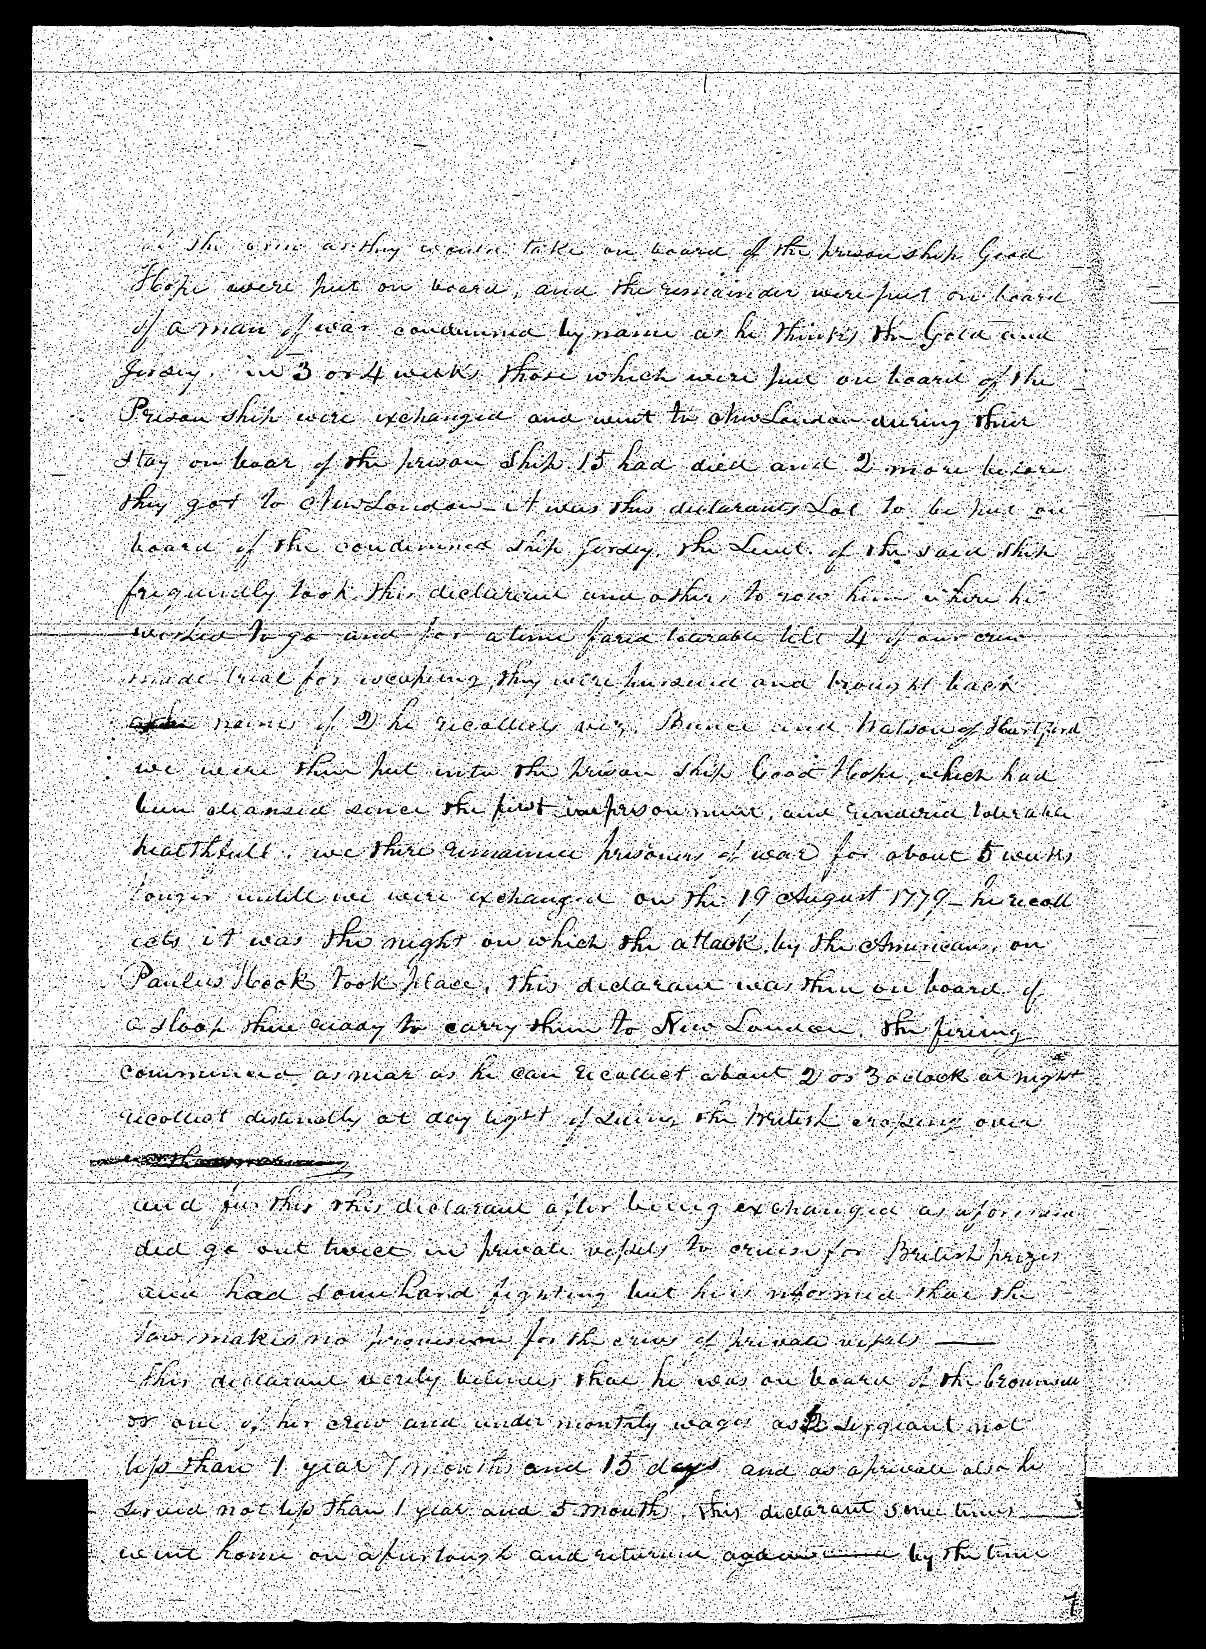 of the crew as they would take on board of the prison ship Good
Hope were put on board, and the remainder were put on board
of a man of war condemned by name as he thinks the Good and
Jersey. in 3 or 4 weeks those which were put on board of the
Prison ship were exchanged and went to New London during their
stay on boar of the prison Ship 15 had died and 2 more before
they got to New London - it was this declarants Lot to be put on
board of the condemned ship Jersey. the Lieut. of the said ship
frequindly took this declarant and others to row him where he
wished to go and for a time fared tolerable till 4 of our crew
made trial for escapeing, they were pursued and brought back
names of 2 he recollects viz. Bunce and Watson of Hartford
we were then put into the prison ship Good Hope, which had
been cleansed since the first imprisonment, and rendered tolerable
healthfull. we there remained prisoners of war for about 5 weeks
longer untill we were exchanged on the 19 August 1779 - he recoll
ects it was the night on which the attack by the Americans, on
Paulus Hook took place, this declarant was then on board of
a sloop then ready to carry them to New London. the fireing
commenced as near as he can recollect about 2 or 3 oclock at night
recollect distinctly at day light of seeing the British croping over
and further this declarant after being exchanged as aforesaid
did go out twice in private vessels to cruise for British prizes
and had some hard fighting but he is informed that the
Law makes no provision for the crews of private vessels
This declarant verily believes that he was on board of the
or one of her crew and under monthly wages as sergeant not
less than 1 year 7 months and 15 days and as a private also he
served not less than 1 year and 5 months. this declarant some times
went home on a furlough and returned again by the time
7